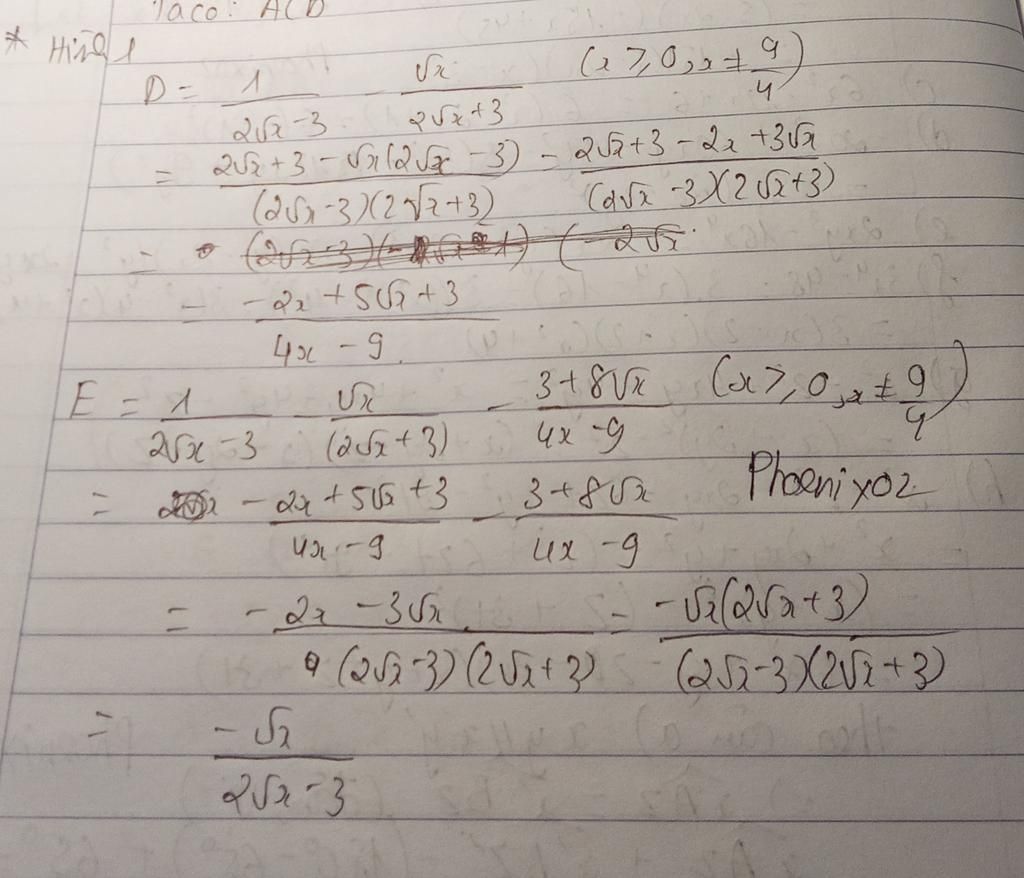 Taco: ACD
* Hình 1
D = 1/(2√x - 3) - √x/(2√x + 3) (x ≥ 0, x ≠ 9/4)
= (2√x + 3 - √x(2√x - 3))/((2√x - 3)(2√x + 3)) = (2√x + 3 - 2x + 3√x)/((2√x - 3)(2√x + 3))
=
= (-2x + 5√x + 3)/(4x - 9)
E = 1/(2√x - 3) - √x/(2√x + 3) - (3 + 8√x)/(4x - 9) (x ≥ 0, x ≠ 9/4)
= (-2x + 5√x + 3)/(4x - 9) - (3 + 8√x)/(4x - 9) Phoenix02
= (-2x - 3√x)/((2√x - 3)(2√x + 3)) = (-√x(2√x + 3))/((2√x - 3)(2√x + 3))
= (-√x)/(2√x - 3)